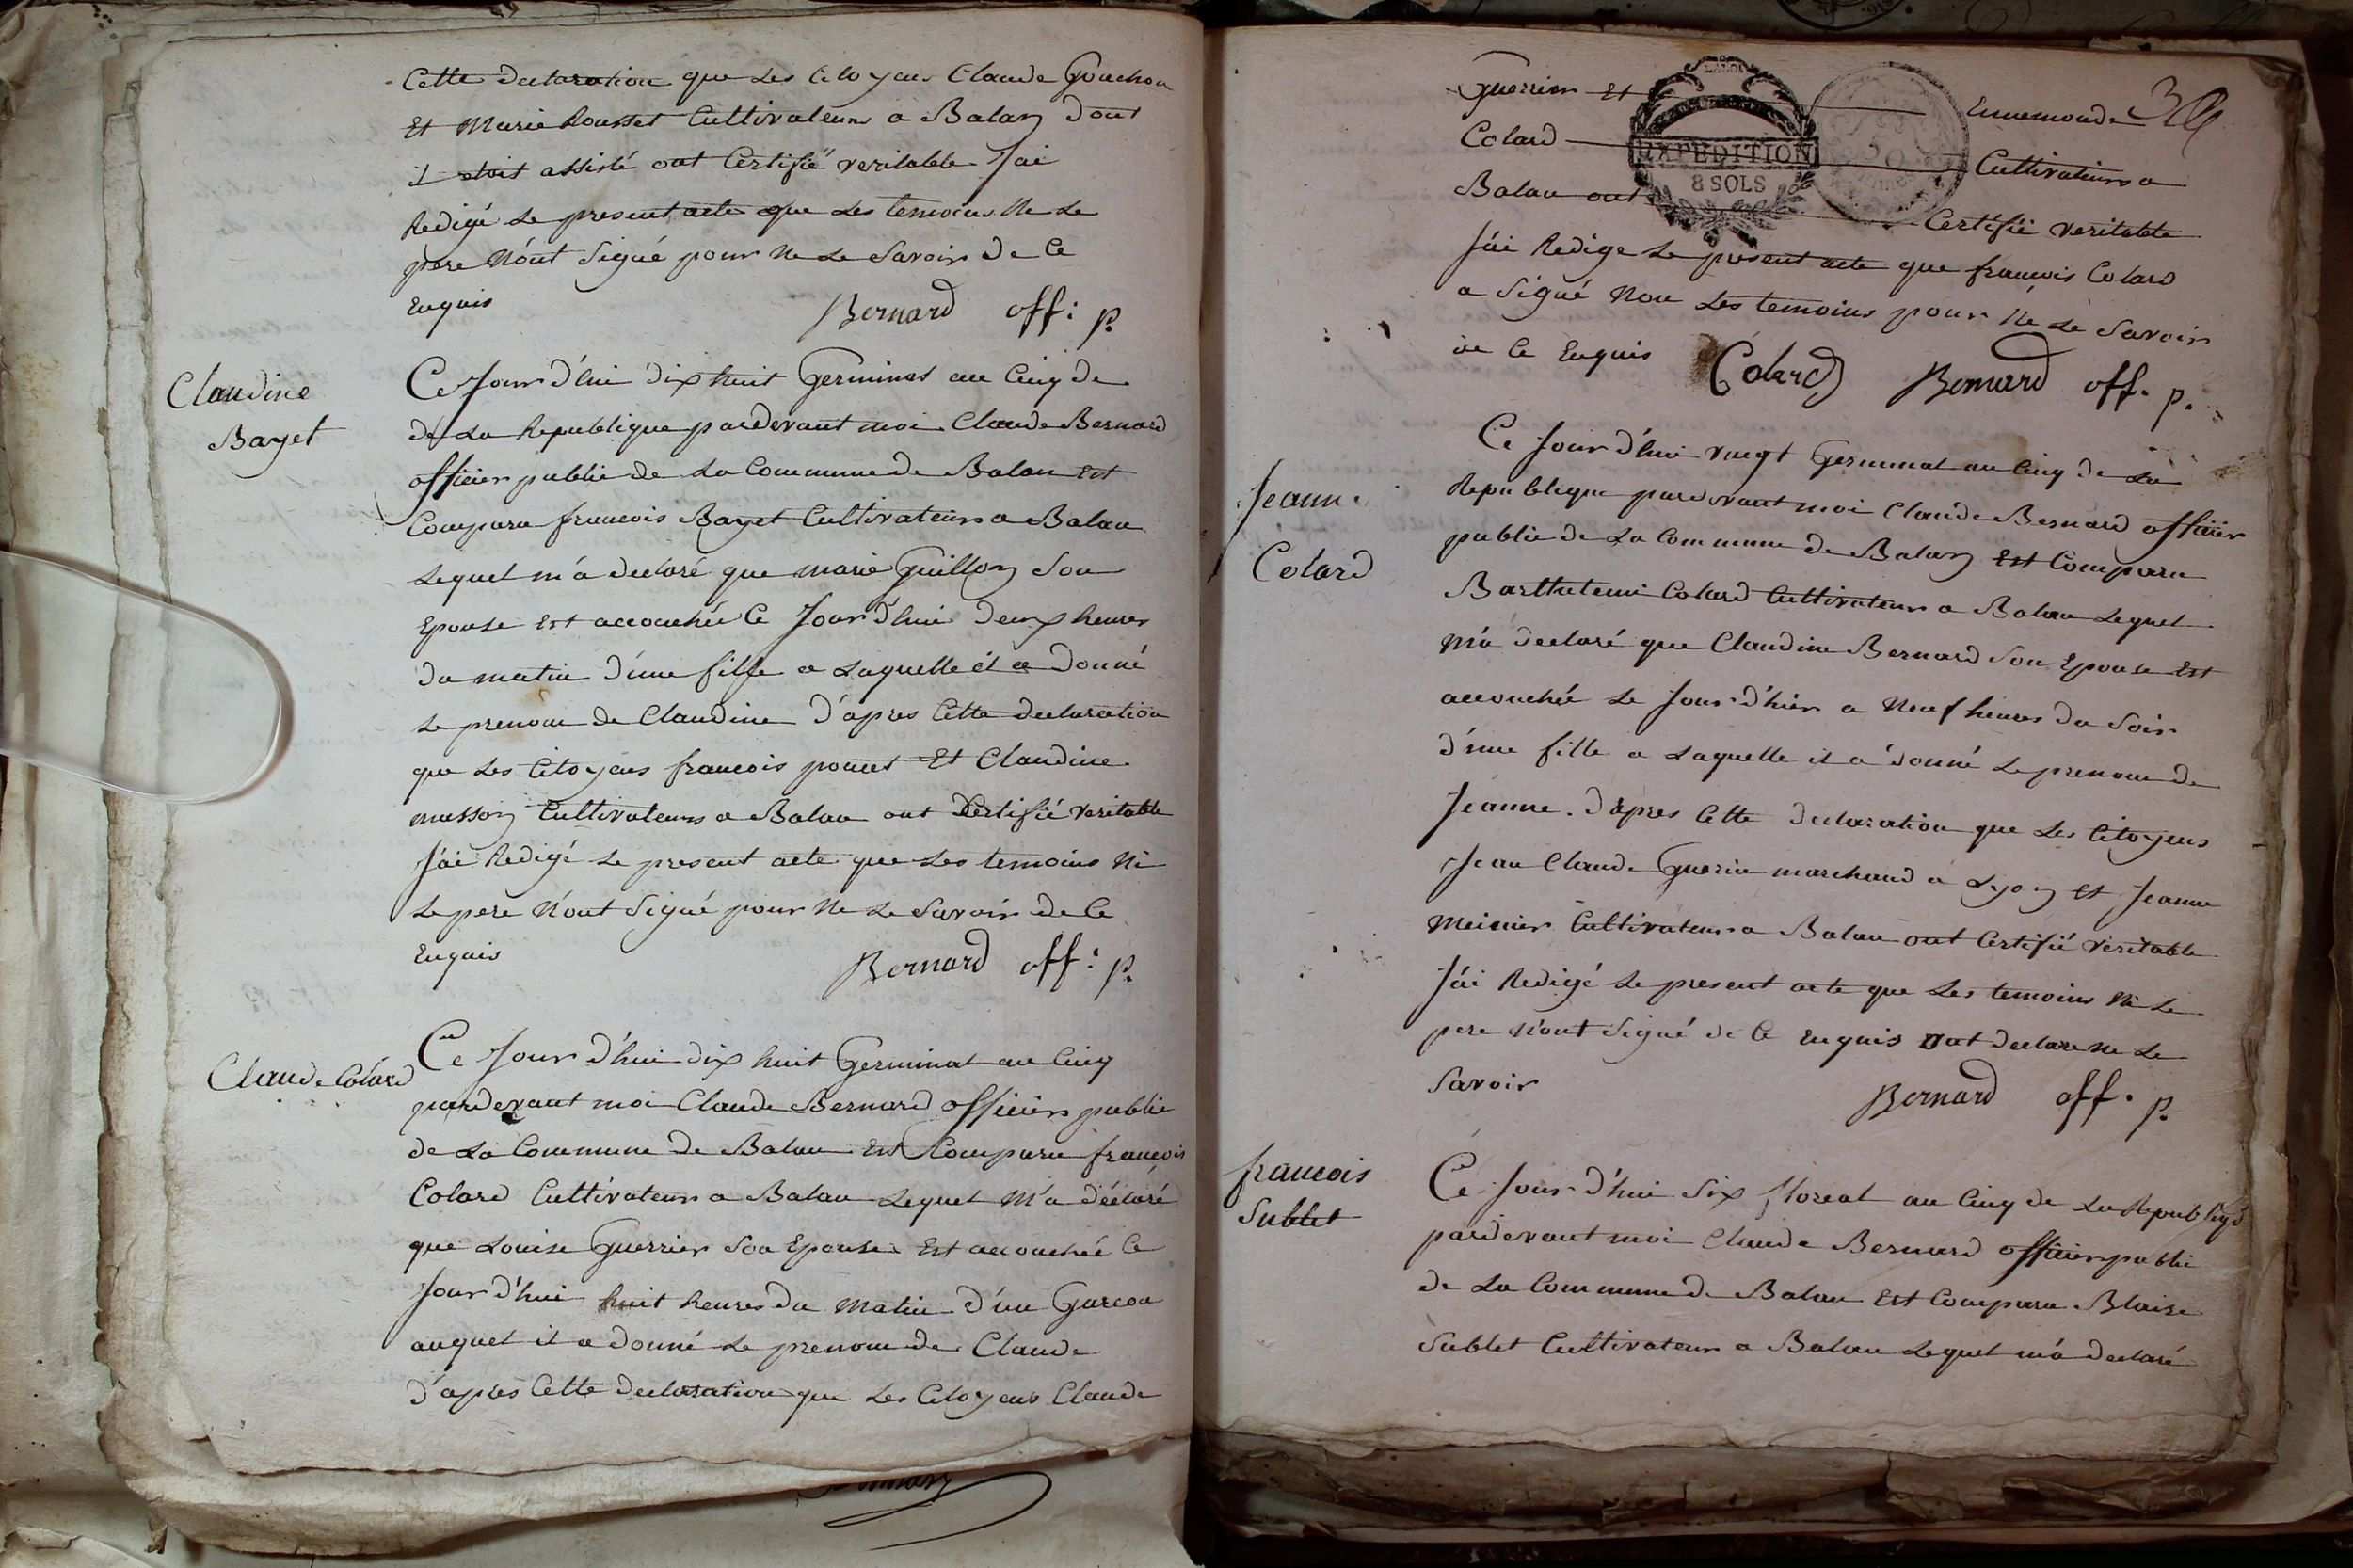 Cette declaration que les Citoyens Claude Gouchon
Et Marie Rousset Cultivateurs a Balan dont
il etoit assisté ont Certifié veritable J'ai
Redigé le present acte que les temoins Ne le
pere N'ont Signé pour Ne le Savoir de Ce
Enquis
Bernard off: p.
Claudine
Bayet
Ce Jour d'hui dix huit Germinal an Cinq de
de La Republique pardevant moi Claude Bernard
officier public de La Commune de Balan Est
Comparu francois Bayet Cultivateur a Balan
Lequel m'a declaré que marie Guillon Son
Epouse Est accouchée Ce Jour d'hui deux heures
du matin d'une fille a Laquelle il a donné
Le prenom de Claudine d'apres Cette declaration
que Les Citoyens francois poncet Et Claudine
musson Cultivateurs a Balan ont Certifié veritable
J'ai Redigé Le present acte que Les temoins Ni
Le pere N'ont Signé pour Ne Le Savoir de Ce
Enquis
Bernard off: p.
Claude Colard
Ce Jour d'hui dix huit Germinal an Cinq
pardevant moi Claude Bernard officier public
de La Commune de Balan Est Comparu francois
Colard Cultivateur a Balan Lequel M'a déclaré
que Louise Guerrier Son Epouse Est accouchée Ce
Jour d'hui huit heures du Matin d'un Garcon
auquel il a donné Le prenom de Claude
d'apres Cette declaration que Les Citoyens Claude
Guerrier Et Ennemonde
Colard Cultivateurs a
Balan ont Certifié veritable
J'ai Redige Le present acte que francois Colard
a Signé Non Les temoins pour Ne Le Savoir
de Ce Enquis Colard Bernard off. p.
EXPEDITION
8 SOLS
Jeanne
Colard
Ce Jour d'hui vingt Germinal an Cinq de La
Republique pardevant moi Claude Bernard officier
public de La Commune de Balan Est Comparu
Barthelemi Colard Cultivateur a Balan Lequel
M'a declaré que Claudine Bernard Son Epouse Est
accouchée Le Jour d'hier a Neuf heures du Soir
d'une fille a Laquelle il a donné Le prenom de
Jeanne. d'apres Cette declaration que Les Citoyens
Jean Claude Guerin marchand a Lyon Et Jeanne
Meinier Cultivateurs a Balan ont Certifié veritable
J'ai Redigé Le present acte que Les temoins Ni Le
pere N'ont Signé de Ce Enquis ont declare Ne Le
Savoir
Bernard off. p.
francois
Sublet
Ce Jour d'hui Six floreal an Cinq de La Republique
pardevant moi Claude Bernard officier public
de La Commune de Balan Est Comparu Blaise
Sublet Cultivateur a Balan Lequel m'a declaré